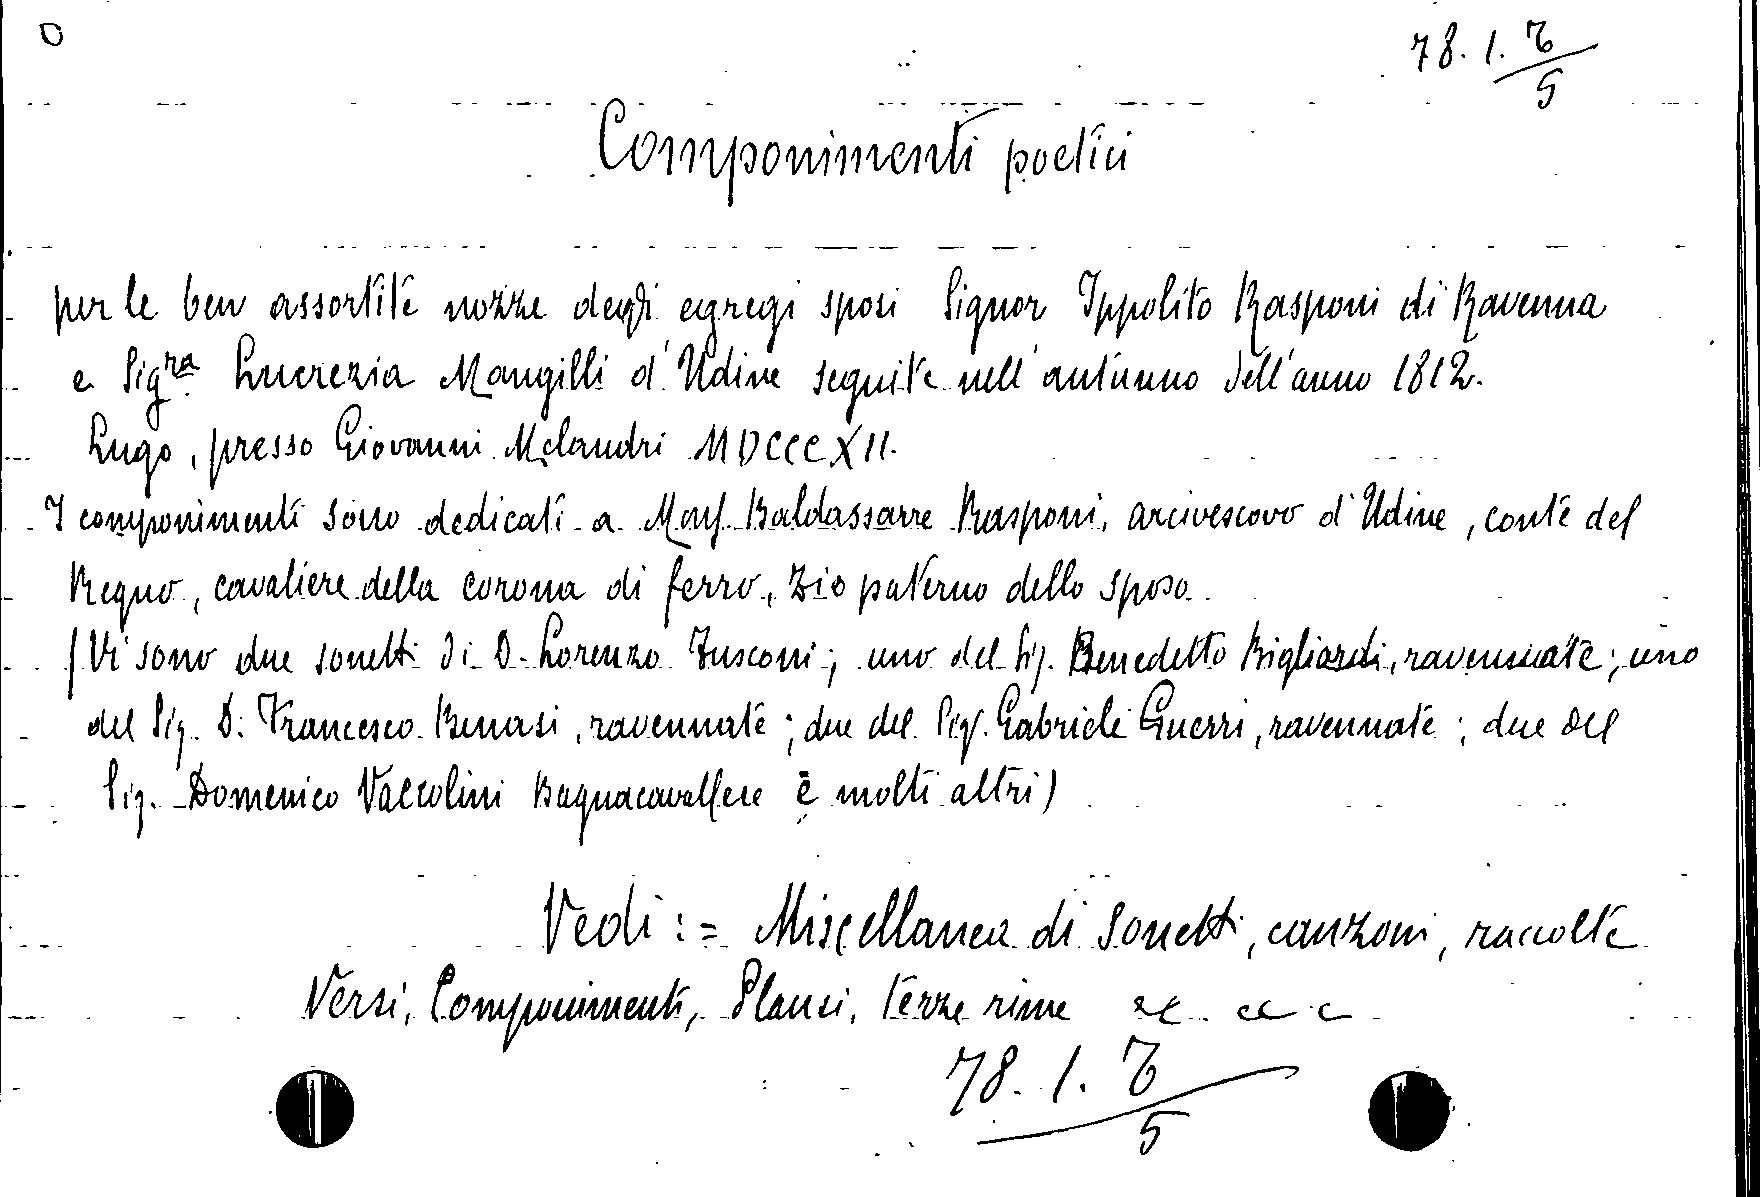 78. 1. Z/5
Componimenti poetici
per le ben assortite nozze degli egregi sposi Signor Ippolito Rasponi di Ravenna
e Sig.ra Lucrezia Mangilli d'Udine seguite nell'autunno dell'anno 1812.
Lugo, presso Giovanni Melandri MDCCCXII.
I componimenti sono dedicati a Mons. Baldassarre Rasponi, arcivescovo d'Udine, conte del
Regno, cavaliere della corona di ferro, zio paterno dello sposo.
(Vi sono due sonetti di D. Lorenzo Fusconi; uno del Sig. Benedetto Bigliardi, ravennate; uno
del Sig. D. Francesco Benasi, ravennate; due del Sig. Gabriele Guerri, ravennate; due del
Sig. Domenico Vaccolini Bagnacavallese e molti altri)
Vedi: = Miscellanea di Sonetti, canzoni, raccolte
Versi, Componimenti, Plausi, terze rime
78. 1. Z/5